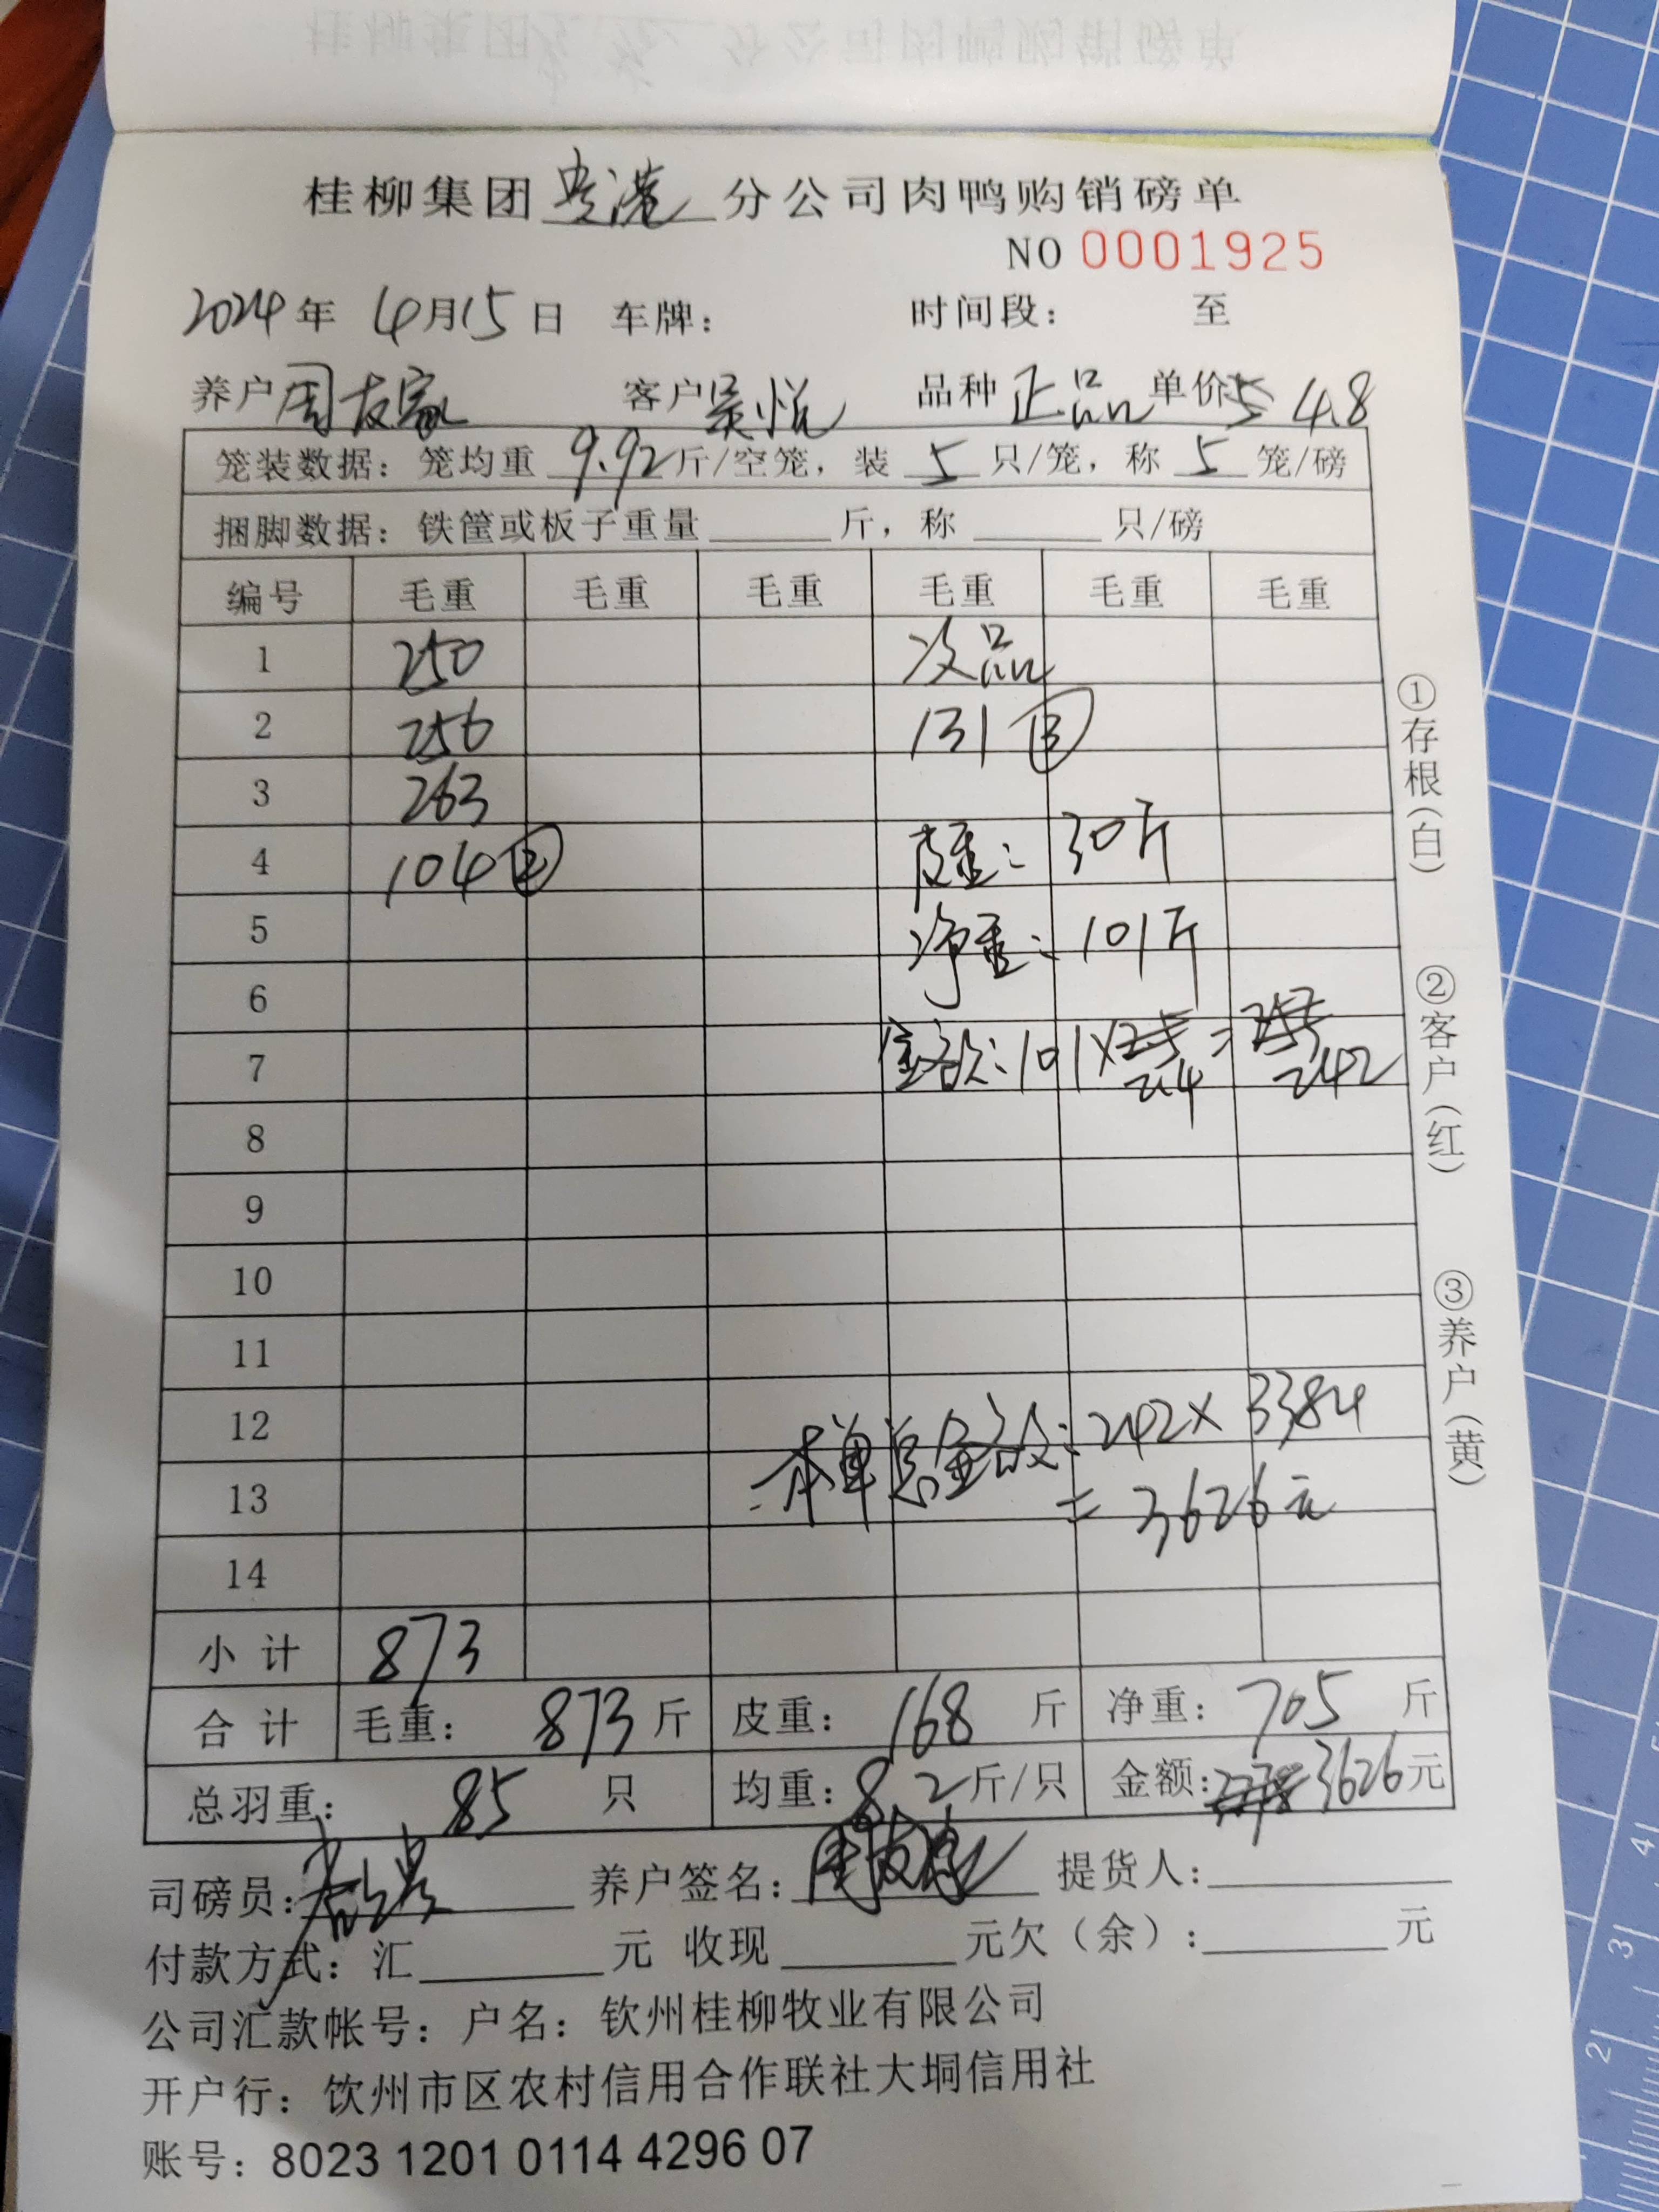 桂柳集团贵港分公司肉鸭购销磅单
NO 0001925
2024年 4月15日 车牌: 时间段: 至
养户 周友家 客户 吴悦 品种 正品 单价 5 4.8
笼装数据: 笼均重 9.92 斤/空笼, 装 5 只/笼, 称 5 笼/磅
捆脚数据: 铁筐或板子重量 斤, 称 只/磅
编号 毛重 毛重 毛重 毛重 毛重 毛重
1 250 次品
2 256 131 ③
3 263
4 104 ② 皮重: 30斤
5 净重: 101斤
6
7 金额: 101× 2.4 = 242
8
9
10
11
12 本单总金额: 242× 3384
13 = 3626元
14
小计 873
合计 毛重: 873 斤 皮重: 168 斤 净重: 705 斤
总羽重: 85 只 均重: 8.2 斤/只 金额: 3626元
司磅员: 养户签名: 周友家 提货人:
付款方式: 汇 元 收现 元欠(余): 元
公司汇款帐号: 户名: 钦州桂柳牧业有限公司
开户行: 饮州市区农村信用合作联社大垌信用社
账号: 8023 1201 0114 4296 07
①存根(白)
②客户(红)
③养户(黄)
5
4
3
2